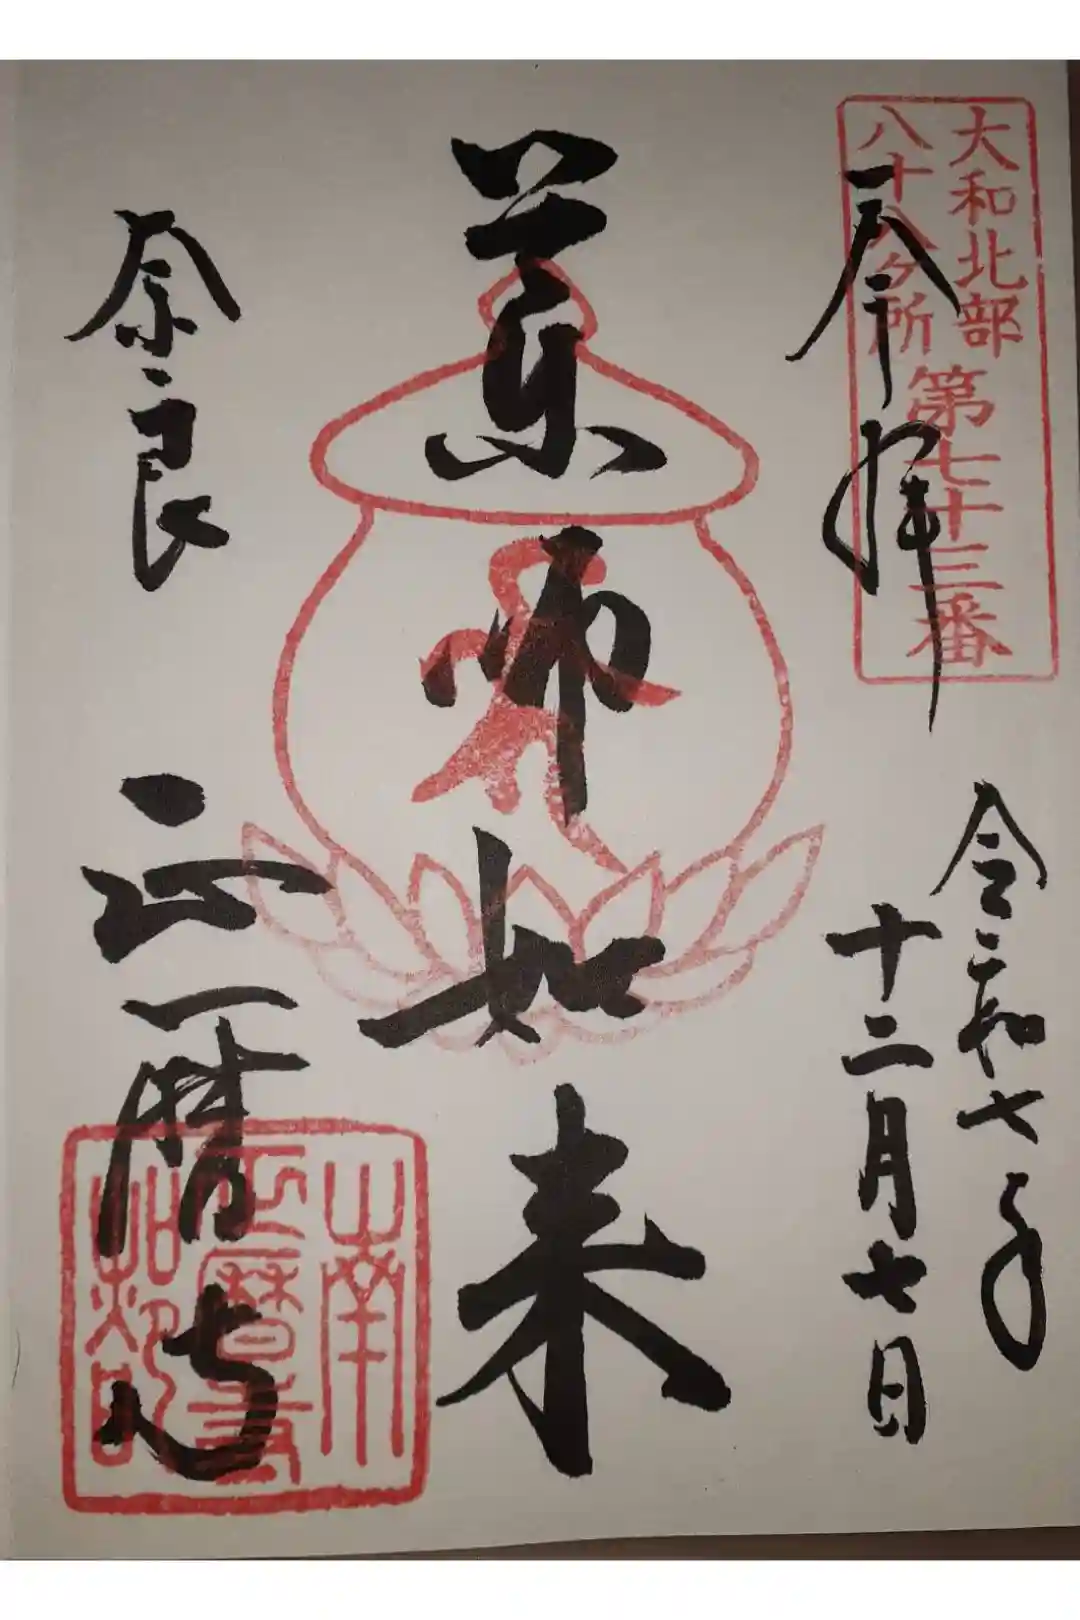 大和北部
八十八ヶ所
第七十三番
奉拝
令和七年
十二月七日
薬師如来
奈良
正暦寺